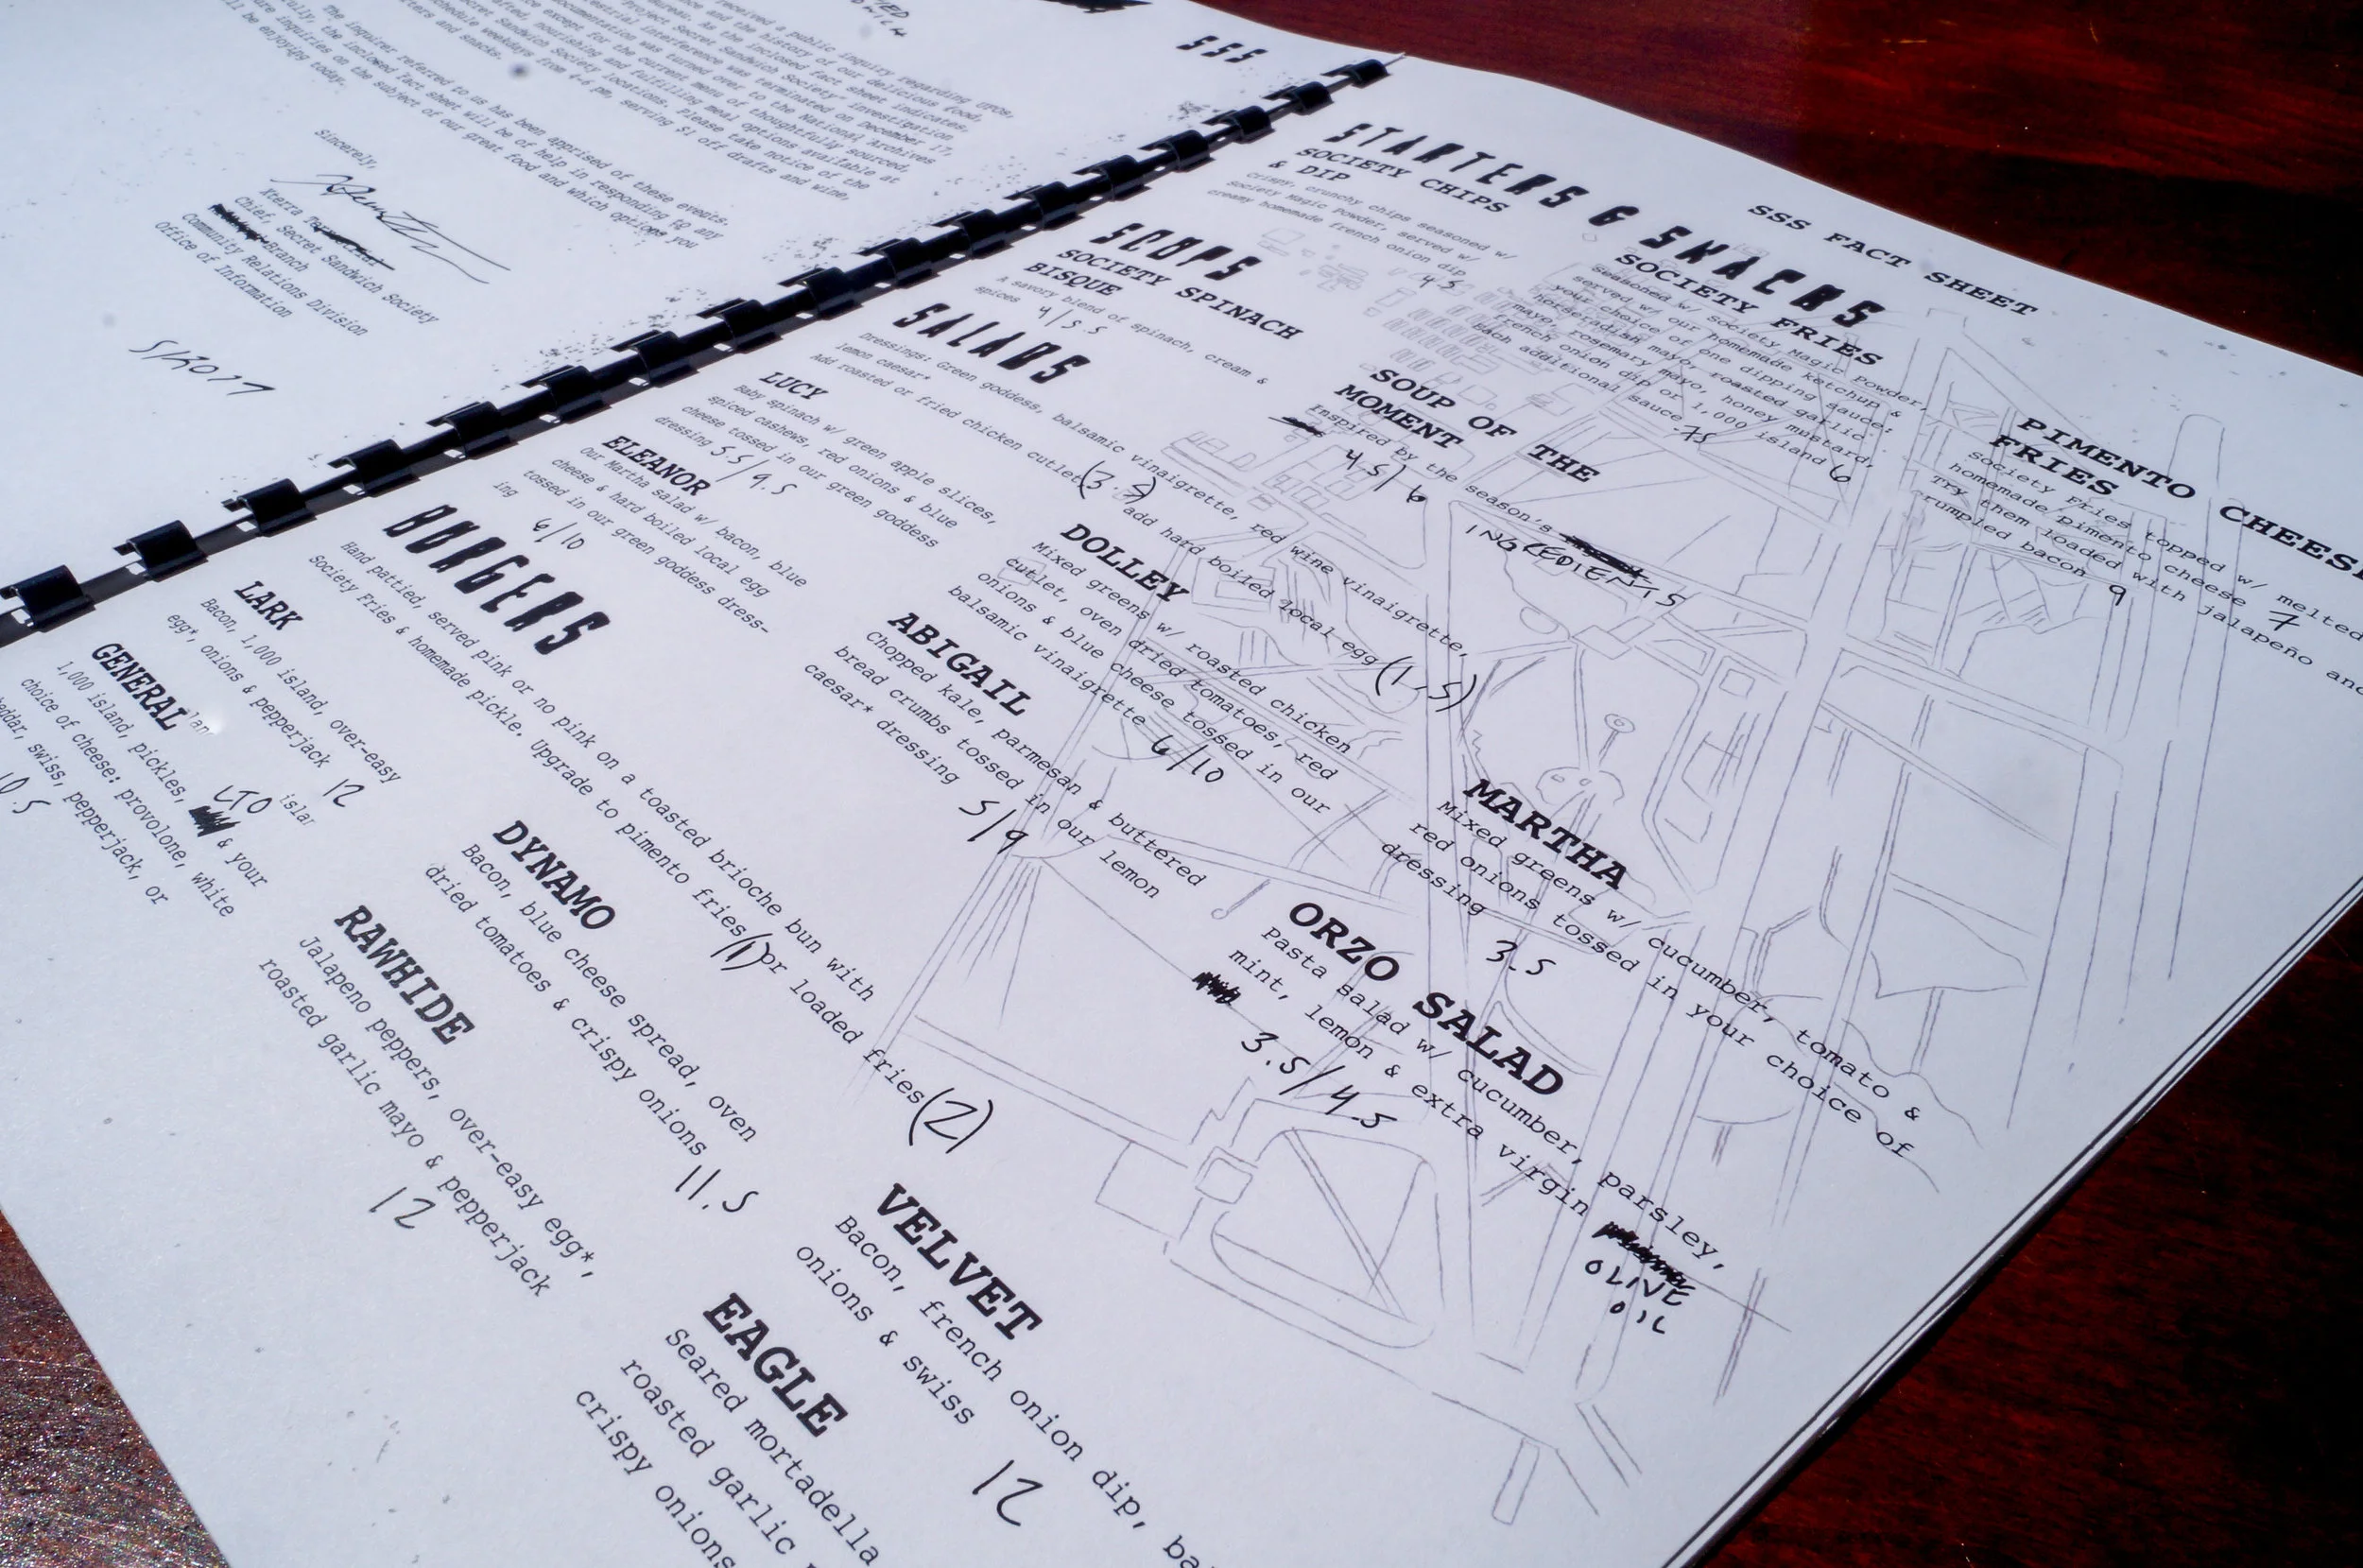 SSS
received a public inquiry regarding
and the history of our delicious food.
As the inclosed fact sheet indicates,
"Project Secret Sandwich Society," investigation
interference was terminated on December 17,
documentation was turned over to the National Archives
except for the current menu of thoughtfully sourced,
nourishing and fulfilling meal options available at
Secret Sandwich Society locations. please take notice of the
schedule weekdays from 4-6 pm, serving $1 off drafts and wine,
and snacks.
The inquirer referred to us has been apprised of these events.
the inclosed Fact sheet will be of help in responding to any
inquiries on the subject of our great food and which options you
be enjoying today.
Sincerely,
Xterra
Chief, Secret Sandwich Society
Branch
Community Relations Division
Office of Information
SSS FACT SHEET
STARTERS & SNACKS
SOCIETY CHIPS
& DIP
Crispy, crunchy chips seasoned w/
Society Magic Powder, served w/
creamy homemade french onion dip
4.5
SOCIETY FRIES
Seasoned w/ Society Magic Powder,
served w/ our homemade ketchup &
your choice of one dipping sauce:
horseradish mayo, roasted garlic
mayo, rosemary mayo, honey mustard,
french onion dip or 1,000 island 6
Each additional sauce .75
PIMENTO CHEESE
FRIES
Society Fries topped w/ melted
homemade pimento cheese 7
Try them loaded with jalapeño and
crumpled bacon 9
SOUPS
SOCIETY SPINACH
BISQUE
A savory blend of spinach, cream &
spices 4/5.5
SOUP OF THE
MOMENT
Inspired by the season's
INGREDIENTS
4.5/6
SALADS
Dressings: Green goddess, balsamic vinaigrette, red wine vinaigrette,
lemon caesar*
Add roasted or fried chicken cutlet add hard boiled local egg (1.5)
LUCY
Baby spinach w/ green apple slices,
spiced cashews, red onions & blue
cheese tossed in our green goddess
dressing 5.5/9.5
DOLLEY
Mixed greens w/ roasted chicken
cutlet, oven dried tomatoes, red
onions & blue cheese tossed in our
balsamic vinaigrette 6/10
MARTHA
Mixed greens w/ cucumber, tomato &
red onions tossed in your choice of
dressing 3.5
ELEANOR
Our Martha salad w/ bacon, blue
cheese & hard boiled local egg
tossed in our green goddess dress-
ing 6/10
ABIGAIL
Chopped kale, parmesan & buttered
bread crumbs tossed in our lemon
caesar* dressing 5/9
ORZO SALAD
Pasta salad w/ cucumber, parsley,
mint, lemon & extra virgin
OLIVE
OIL
3.5/4.5
BURGERS
Hand pattied, served pink or no pink on a toasted brioche bun with
Society Fries & homemade pickle. Upgrade to pimento fries(1)or loaded fries(2)
LARK
Bacon, 1,000 island, over-easy
egg*, onions & pepperjack 12
DYNAMO
Bacon, blue cheese spread, oven
dried tomatoes & crispy onions
11.5
VELVET
Bacon, french onion dip,
onions & swiss 12
GENERAL
1,000 island, pickles, LTO & your
choice of cheese: provolone, white
cheddar, swiss, pepperjack, or
10.5
RAWHIDE
Jalapeno peppers, over-easy egg*,
roasted garlic mayo & pepperjack
12
EAGLE
Seared mortadella
roasted garlic
crispy onions